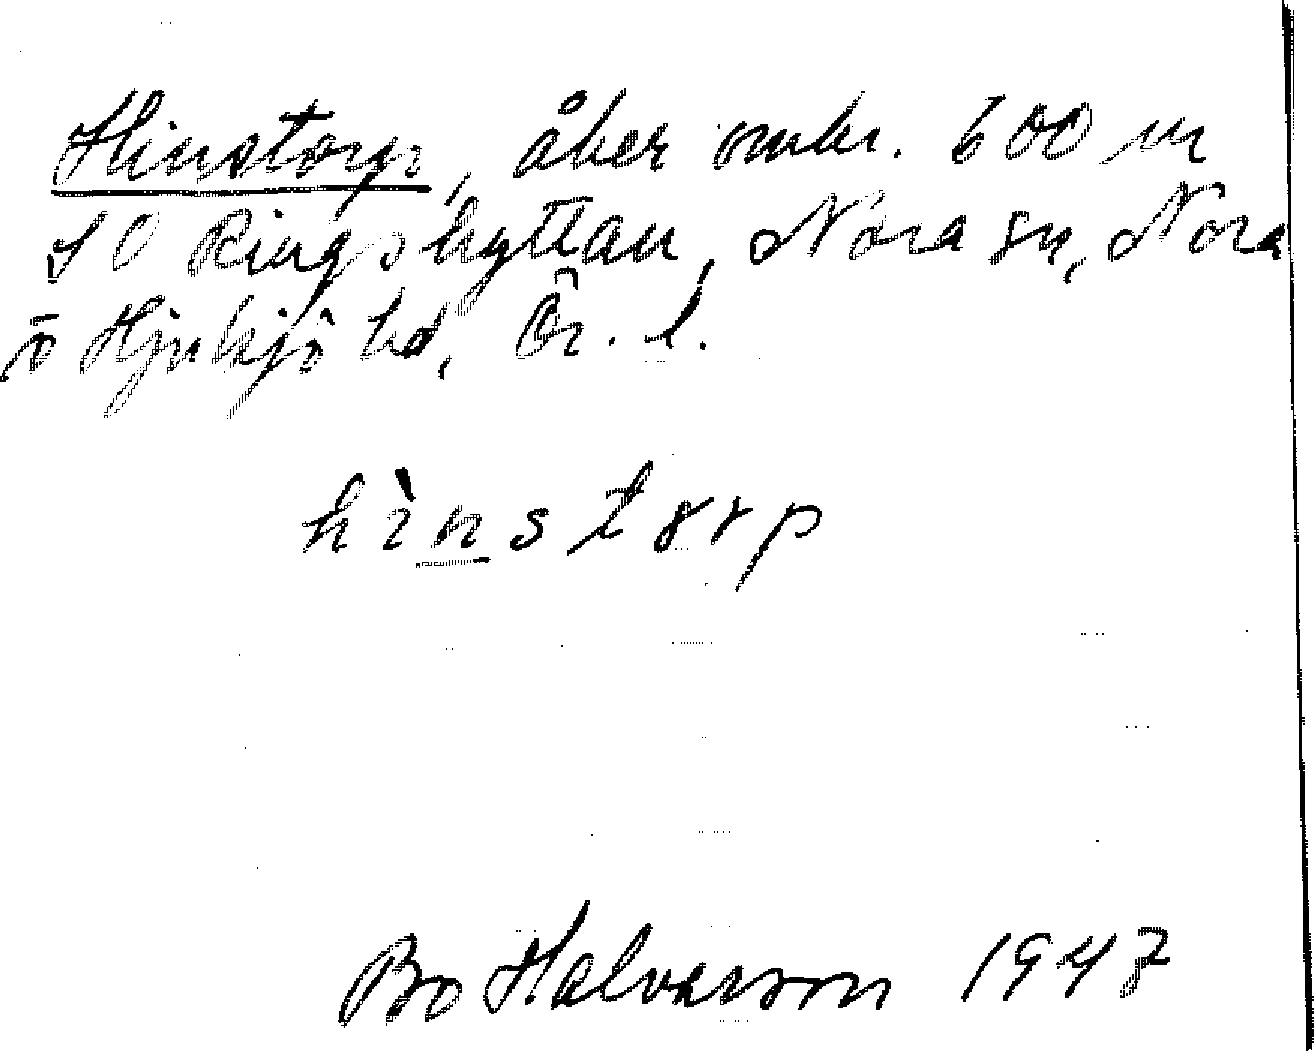 Hinstorp, åker omkr. 600 m
SO Ringshyttan, Nora sn, Nora
o Hjulsjö hd, Ör. l.
hìnstørp
Bo Halvarson 1947